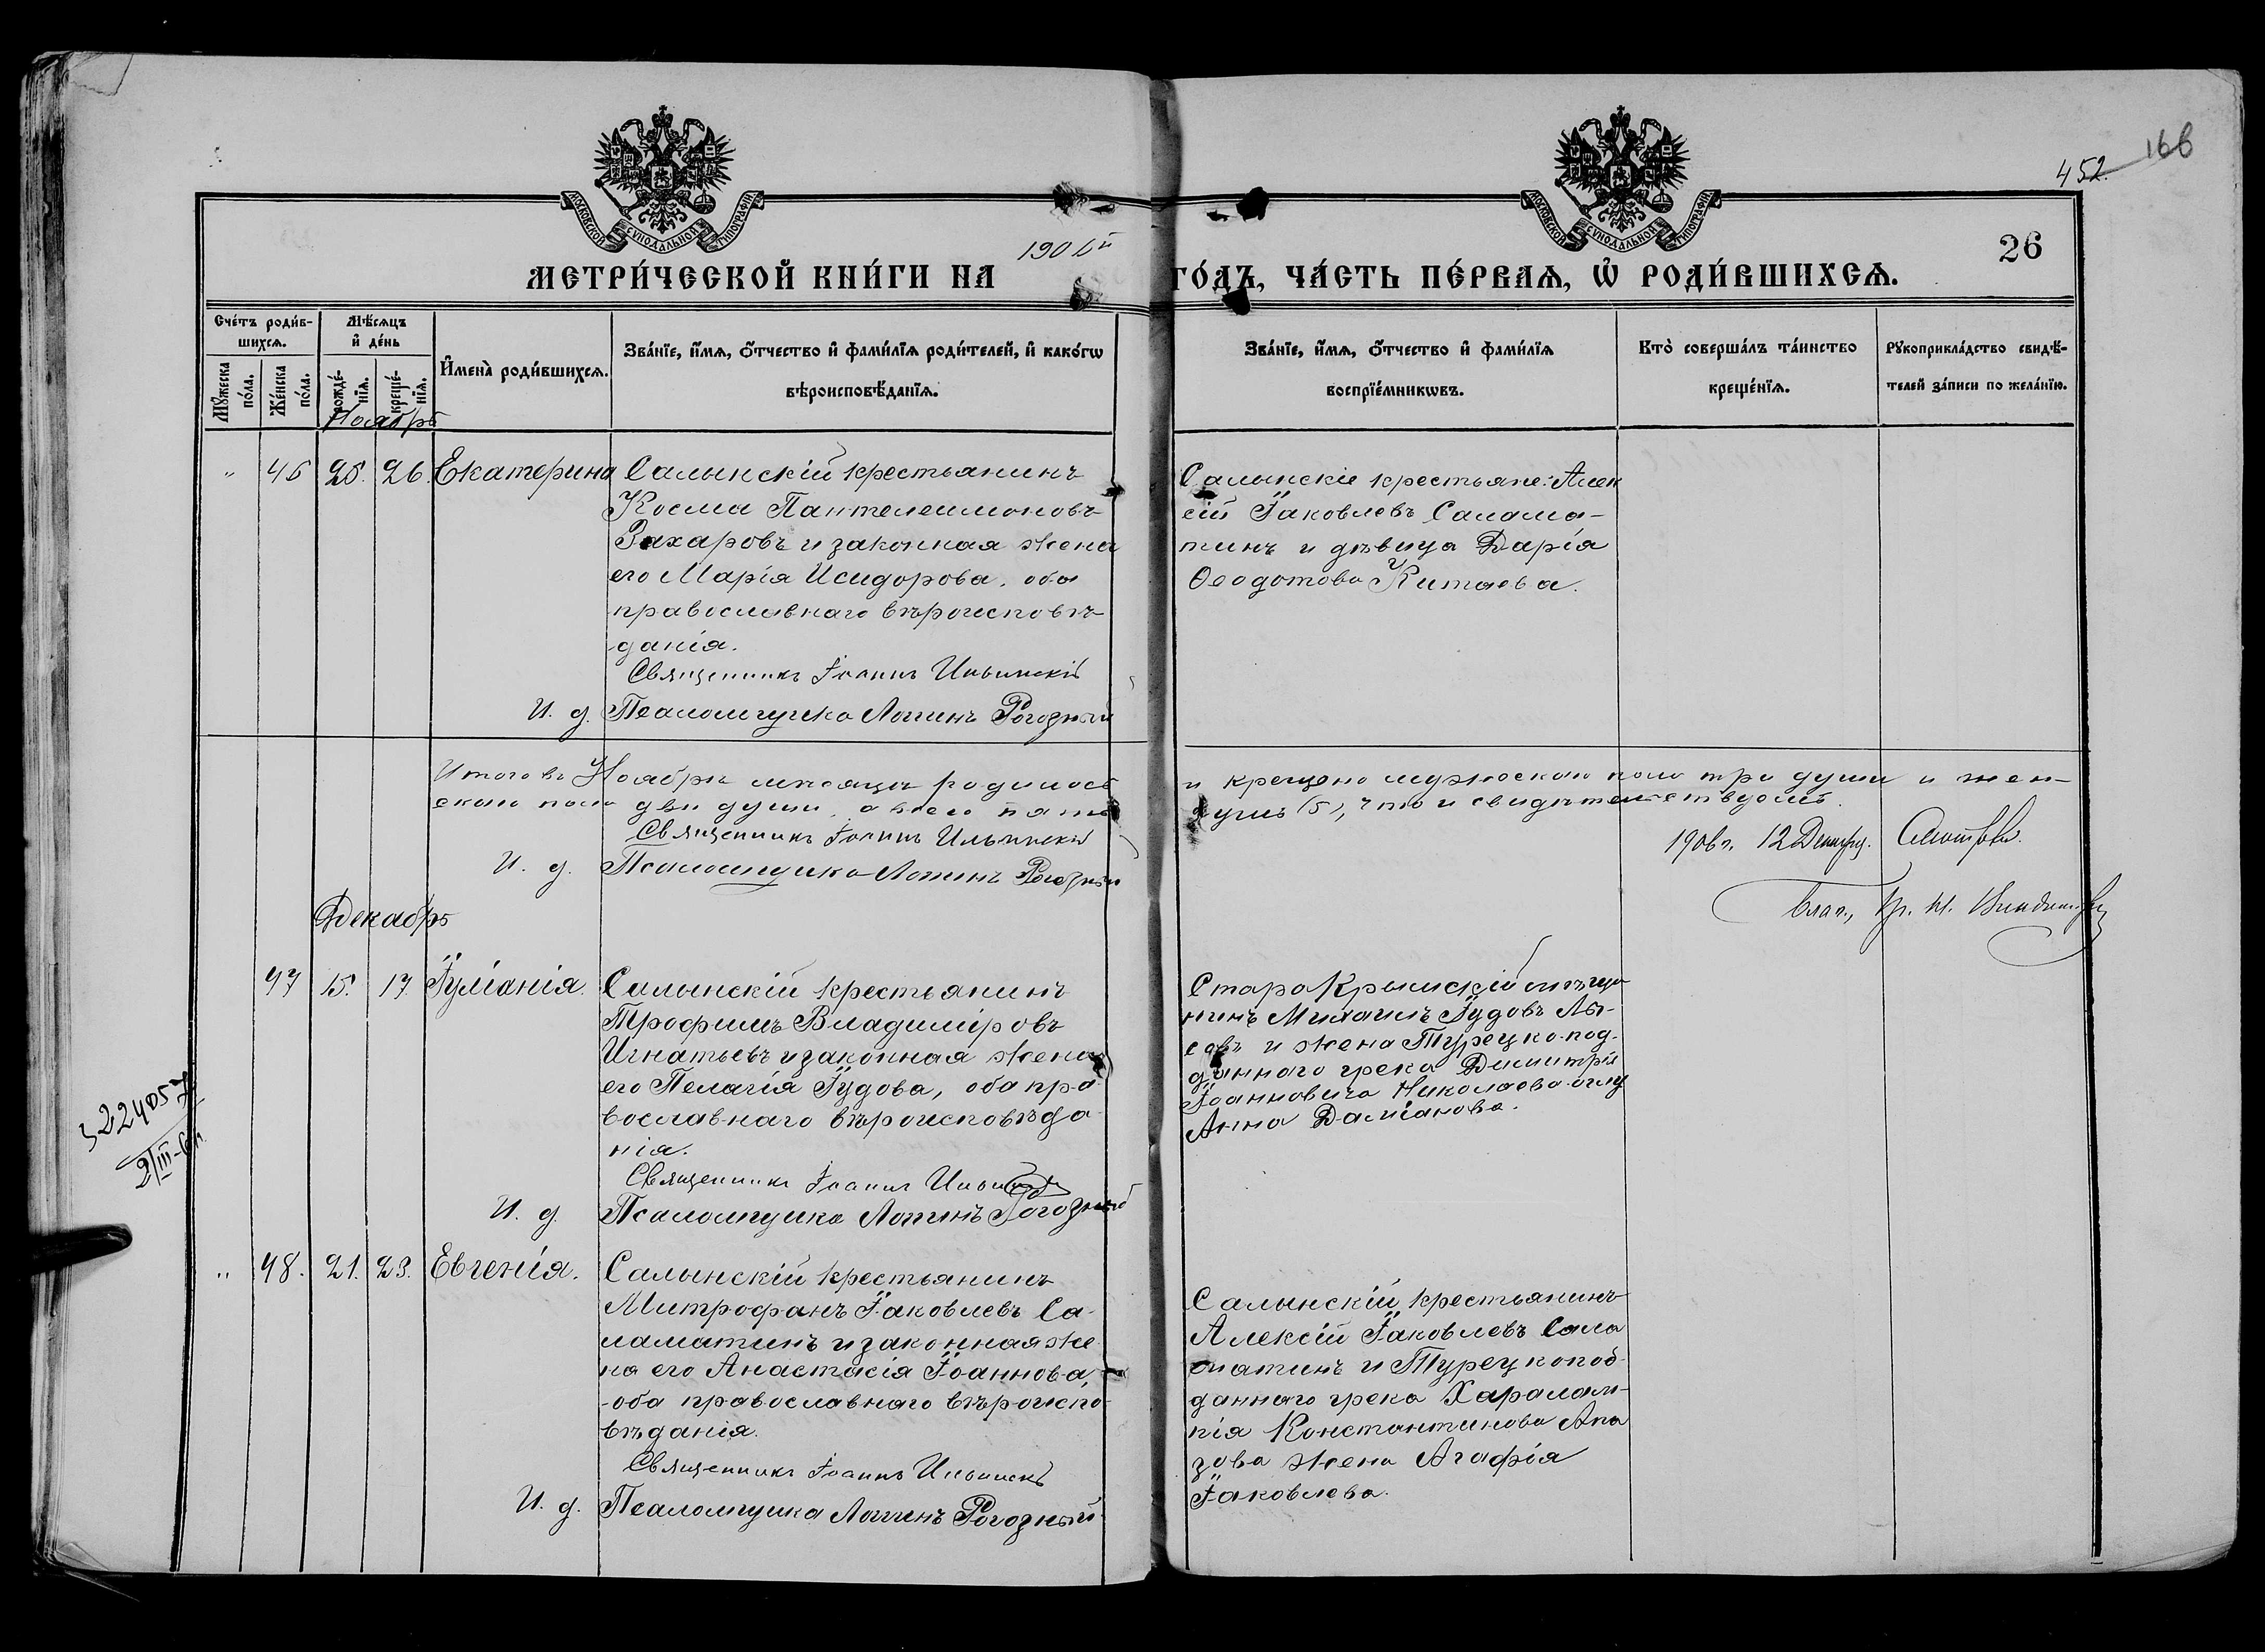 166
452.
МОСКОВСКОЙ СУНОДАЛЬНОЙ ТИПОГРАФІИ
МОСКОВСКОЙ СУНОДАЛЬНОЙ ТИПОГРАФІИ
26
МЕТРИ́ЧЕСКОЙ КНИ́ГИ НА 1906й ГО́ДЪ, ЧА́СТЬ ПЕ́РВАѦ, Ѽ РОДИ́ВШИХСѦ.
Сче́тъ роди́в-
шихсѧ.
Мꙋ́жеска по́ла.
Же́нска по́ла.
Мѣ́сѧцъ
и҆ де́нь
рожде́-нїѧ.
креще́-нїѧ.
И҆мена̀ роди́вшихсѧ.
Зва́нїе, и҆́мѧ, ѻ҆́тчество и҆ фами́лїѧ роди́телей, и҆ како́гѡ
вѣроисповѣ́данїѧ.
Зва́нїе, и҆́мѧ, ѻ҆́тчество и҆ фами́лїѧ
воспрїе́мникѡвъ.
Кто̀ соверша́лъ та́инство
креще́нїѧ.
Рꙋкоприкла́дство свидѣ́-
телей за́писи по жела́нїю.
Ноябрь
" 46 25. 26. Екатерина
Салынскій крестьянинъ
Косма Пантелеимоновъ
Захаровъ и законная жена
его Марія Исидорова, оба
православнаго вѣроисповѣ-
данія.
Священникъ Іоаннъ Ильинскій
И. д. Псаломщика Логгинъ Рогозный
Салынскіе крестьяне: Алек
сій Іаковлевъ Салама-
тинъ и дѣвица Дарія
Ѳеодотова Китаева.
Итого въ Ноябрѣ мѣсяцѣ родилось и крещено мужескаго пола три души и жен-
скаго пола двѣ души, а всего пять душъ (5), что и свидѣтельствуемъ.
Священникъ Іоаннъ Ильинскій
И. д. Псаломщика Логгинъ Рогозный
1906 г. 12 Декабр.
Благ.,
Декабрь
47 15. 17. Іуліанія.
Салынскій крестьянинъ
Трофимъ Владиміровъ
Игнатьевъ и законная жена
его Пелагія Іудова, оба пра-
вославнаго вѣроисповѣда-
нія.
Священникъ Іоаннъ
И. д. Псаломщика Логгинъ Рогозный
СтароКрымскій мѣща
нинъ Михаилъ Іудовъ
и жена Турецко-под-
даннаго грека Димитрія
Іоанновича Николаева-оглу
Анна Даміанова.
3224057
2/III-
" 48. 21. 23. Евгенія.
Салынскій крестьянинъ
Митрофанъ Іаковлевъ Са-
ламатинъ и законная же-
на его Анастасія Іоаннова,
оба православнаго вѣроиспо-
вѣданія.
Священникъ Іоаннъ Ильинскій
И. д. Псаломщика Логгинъ Рогозный
Салынскій крестьянинъ
Алексій Іаковлевъ Сала
матинъ и Турецкопод-
даннаго грека Харалам-
пія Константинова Апа
зова жена Агафія
Іаковлева.